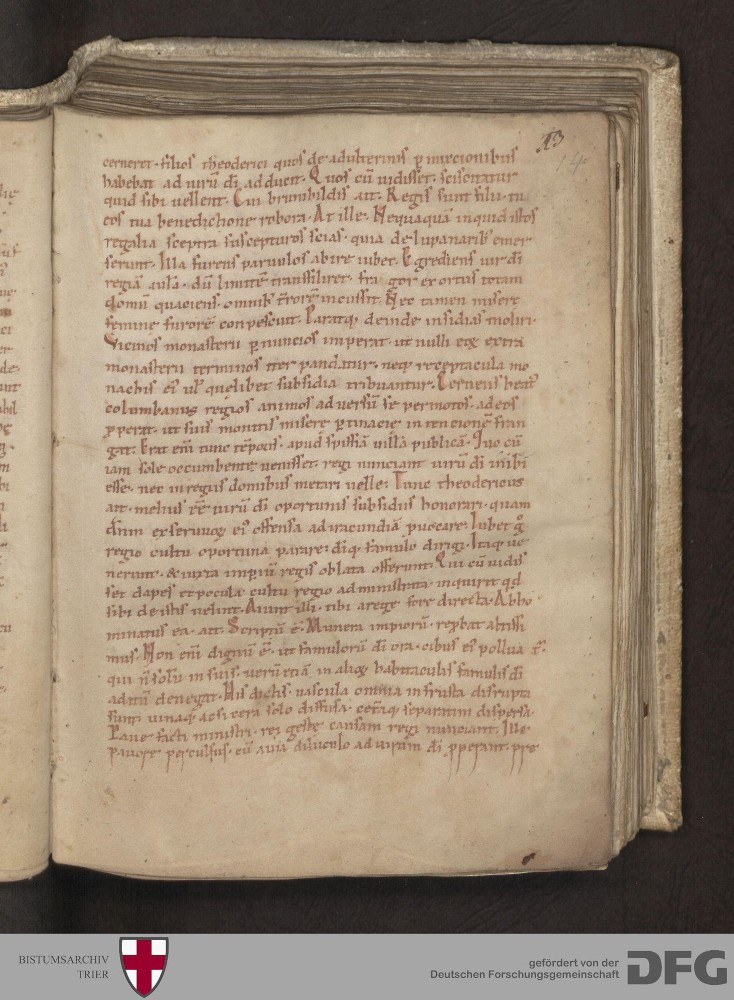 13
14
cerneret. filios theoderici quos de adulterinis ꝑ mixcionibus
habebat ad uirũ dĩ adducit. Quos cũ uidisset. sciscitatur
quid sibi uellent. Cui brunihildis ait. Regis sunt filii. tu
eos tua benedictione robora. At ille. Nequaquã inquid istos
regalia sceptra suscepturos scias. quia de lupanarib' emer
serunt. Illa furens paruulos abire iubet. Egrediens uir dĩ
regiã aulã. dũ limitẽ transsiliret. fra gor exortus totam
domũ quaciens. omnib' t̃rorẽ incussit. Nec tamen misere
femine furorẽ conpescuit. Paratq; deinde insidias moliri.
Vicinos monasterii ꝑ nuncios imperat. ut nulli eoꝝ extra
monasterii terminos iter pandatur. neq; receptacula mo
nachis ei' ul' quelibet subsidia tribuantur. Cernens beat'
columbanus regios animos aduersũ se permotos. ad eos
ꝓperat. ut suis monitis misere ꝑtinacie intencionẽ fran
gat. Erat enĩ tunc tẽporis. apud spissiã uillã publicã. Quo cũ
iam sole occumbente uenisset. regi nunciant uirũ dĩ inibi
esse. nec in regiis domibus metari uelle. Tunc theodericus
ait. melius eẽ uirũ dĩ oportunis subsidiis honorari. quam
dnm ex seruoꝝ ei' offensa ad iracundiã ꝓuocare. Iubet g̊
regio cultu oportuna parare. dĩq; famulo dirigi. Itaq; ue
nerunt. & iuxta imꝑiũ regis oblata offerunt. Qui cũ uidis
set dapes et pocula cultu regio administrata. inquirit qd
sibi de istis uelint. Aiunt illi. tibi a rege fore directa. Abho
minatus ea. ait. Scriptũ ẽ. Munera impiorũ. reꝓbat altissi
mus. Non enĩ dignũ ẽ. ut famulorũ dĩ ora. cibus ei' polluãt̃.
qui ñ solũ in suis. uerũ etiã in alioꝝ habitaculis famulis dĩ
aditũ denegat. His dictis. uascula omnia in frusta disrupta
sunt. uinaq; ac sicera solo diffusa. cet̃aq; separatim dispersa.
Paue facti ministri. rei geste causam regi nunciant. Ille
pauore perculsus. cũ auia diluculo ad uirum dĩ ꝓperant. pre
BISTUMSARCHIV
TRIER
gefördert von der
Deutschen Forschungsgemeinschaft
DFG